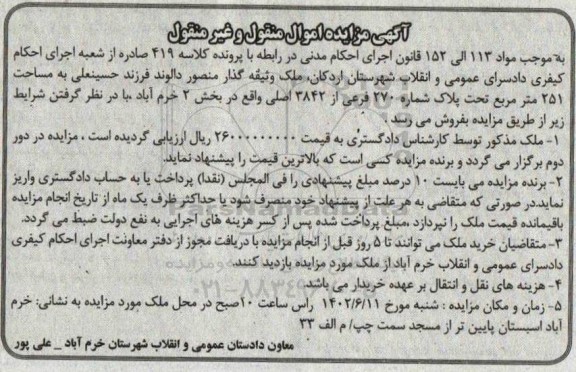 آگهی مزایده اموال منقول و غیر منقول
به موجب مواد ۱۱۳ الی ۱۵۲ قانون اجرای احکام مدنی در رابطه با پرونده کلاسه ۴۱۹ صادره از شعبه اجرای احکام
کیفری دادسرای عمومی و انقلاب شهرستان اردکان، ملک وثیقه گذار منصور دالوند فرزند حسینعلی به مساحت
۲۵۱ متر مربع تحت پلاک شماره ۲۷۰ فرعی از ۳۸۴۲ اصلی واقع در بخش ۲ خرم آباد ،با در نظر گرفتن شرایط
زیر از طریق مزایده بفروش می رسد .
۱- ملک مذکور توسط کارشناس دادگستری به قیمت ۲۶۰۰۰۰۰۰۰۰۰ ریال ارزیابی گردیده است ، مزایده در دور
دوم برگزار می گردد و برنده مزایده کسی است که بالاترین قیمت را پیشنهاد نماید.
۲- برنده مزایده می بایست ۱۰ درصد مبلغ پیشنهادی را فی المجلس (نقدا) پرداخت یا به حساب دادگستری واریز
نماید.در صورتی که متقاضی به هر علت از پیشنهاد خود منصرف شود یا حداکثر ظرف یک ماه از تاریخ انجام مزایده
باقیمانده قیمت ملک را نپردازد ،مبلغ پرداخت شده پس از کسر هزینه های اجرایی به نفع دولت ضبط می گردد.
۳- متقاضیان خرید ملک می توانند تا ۵ روز قبل از انجام مزایده با دریافت مجوز از دفتر معاونت اجرای احکام کیفری
دادسرای عمومی و انقلاب خرم آباد از ملک مورد مزایده بازدید کنند.
۴- هزینه های نقل و انتقال بر عهده خریدار می باشد.
۵- زمان و مکان مزایده : شنبه مورخ ۱۴۰۲/۶/۱۱ راس ساعت ۱۰صبح در محل ملک مورد مزایده به نشانی: خرم
آباد اسبستان پایین تر از مسجد سمت چپ/ م الف ۳۳
معاون دادستان عمومی و انقلاب شهرستان خرم آباد _ علی پور